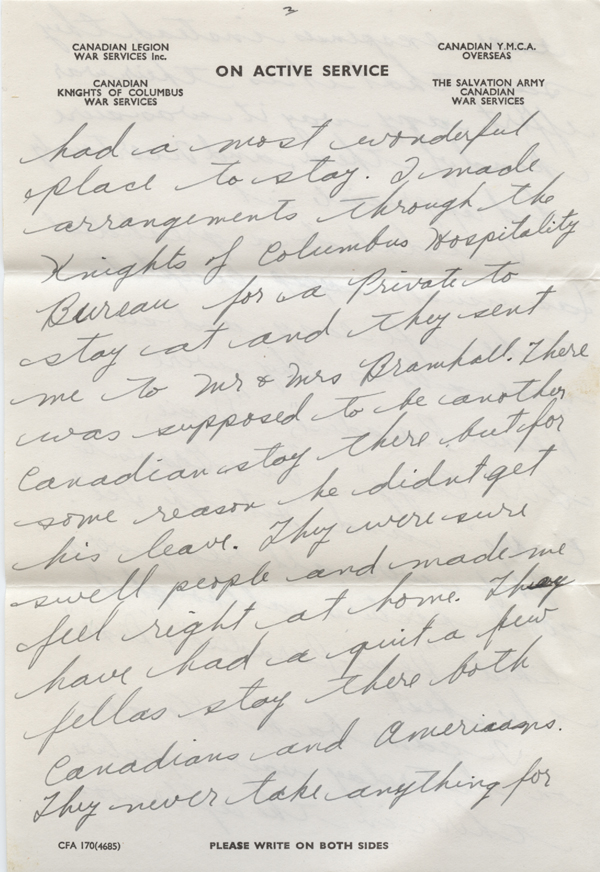 3
CANADIAN LEGION
WAR SERVICES Inc.
CANADIAN
KNIGHTS OF COLUMBUS
WAR SERVICES
ON ACTIVE SERVICE
CANADIAN Y.M.C.A.
OVERSEAS
THE SALVATION ARMY
CANADIAN
WAR SERVICES
had a most wonderful
place to stay. I made
arrangements through the
Knights of Columbus Hospitality
Bureau for a Private to
stay at and they sent
me to Mr & Mrs Bramhall. There
was supposed to be another
Canadian stay there but for
some reason he didnt get
his leave. They were sure
swell people and made me
feel right at home. They
have had a quit a few
fellas stay there both
Canadians and Americans.
They never take anything for
CFA 170(4685)
PLEASE WRITE ON BOTH SIDES